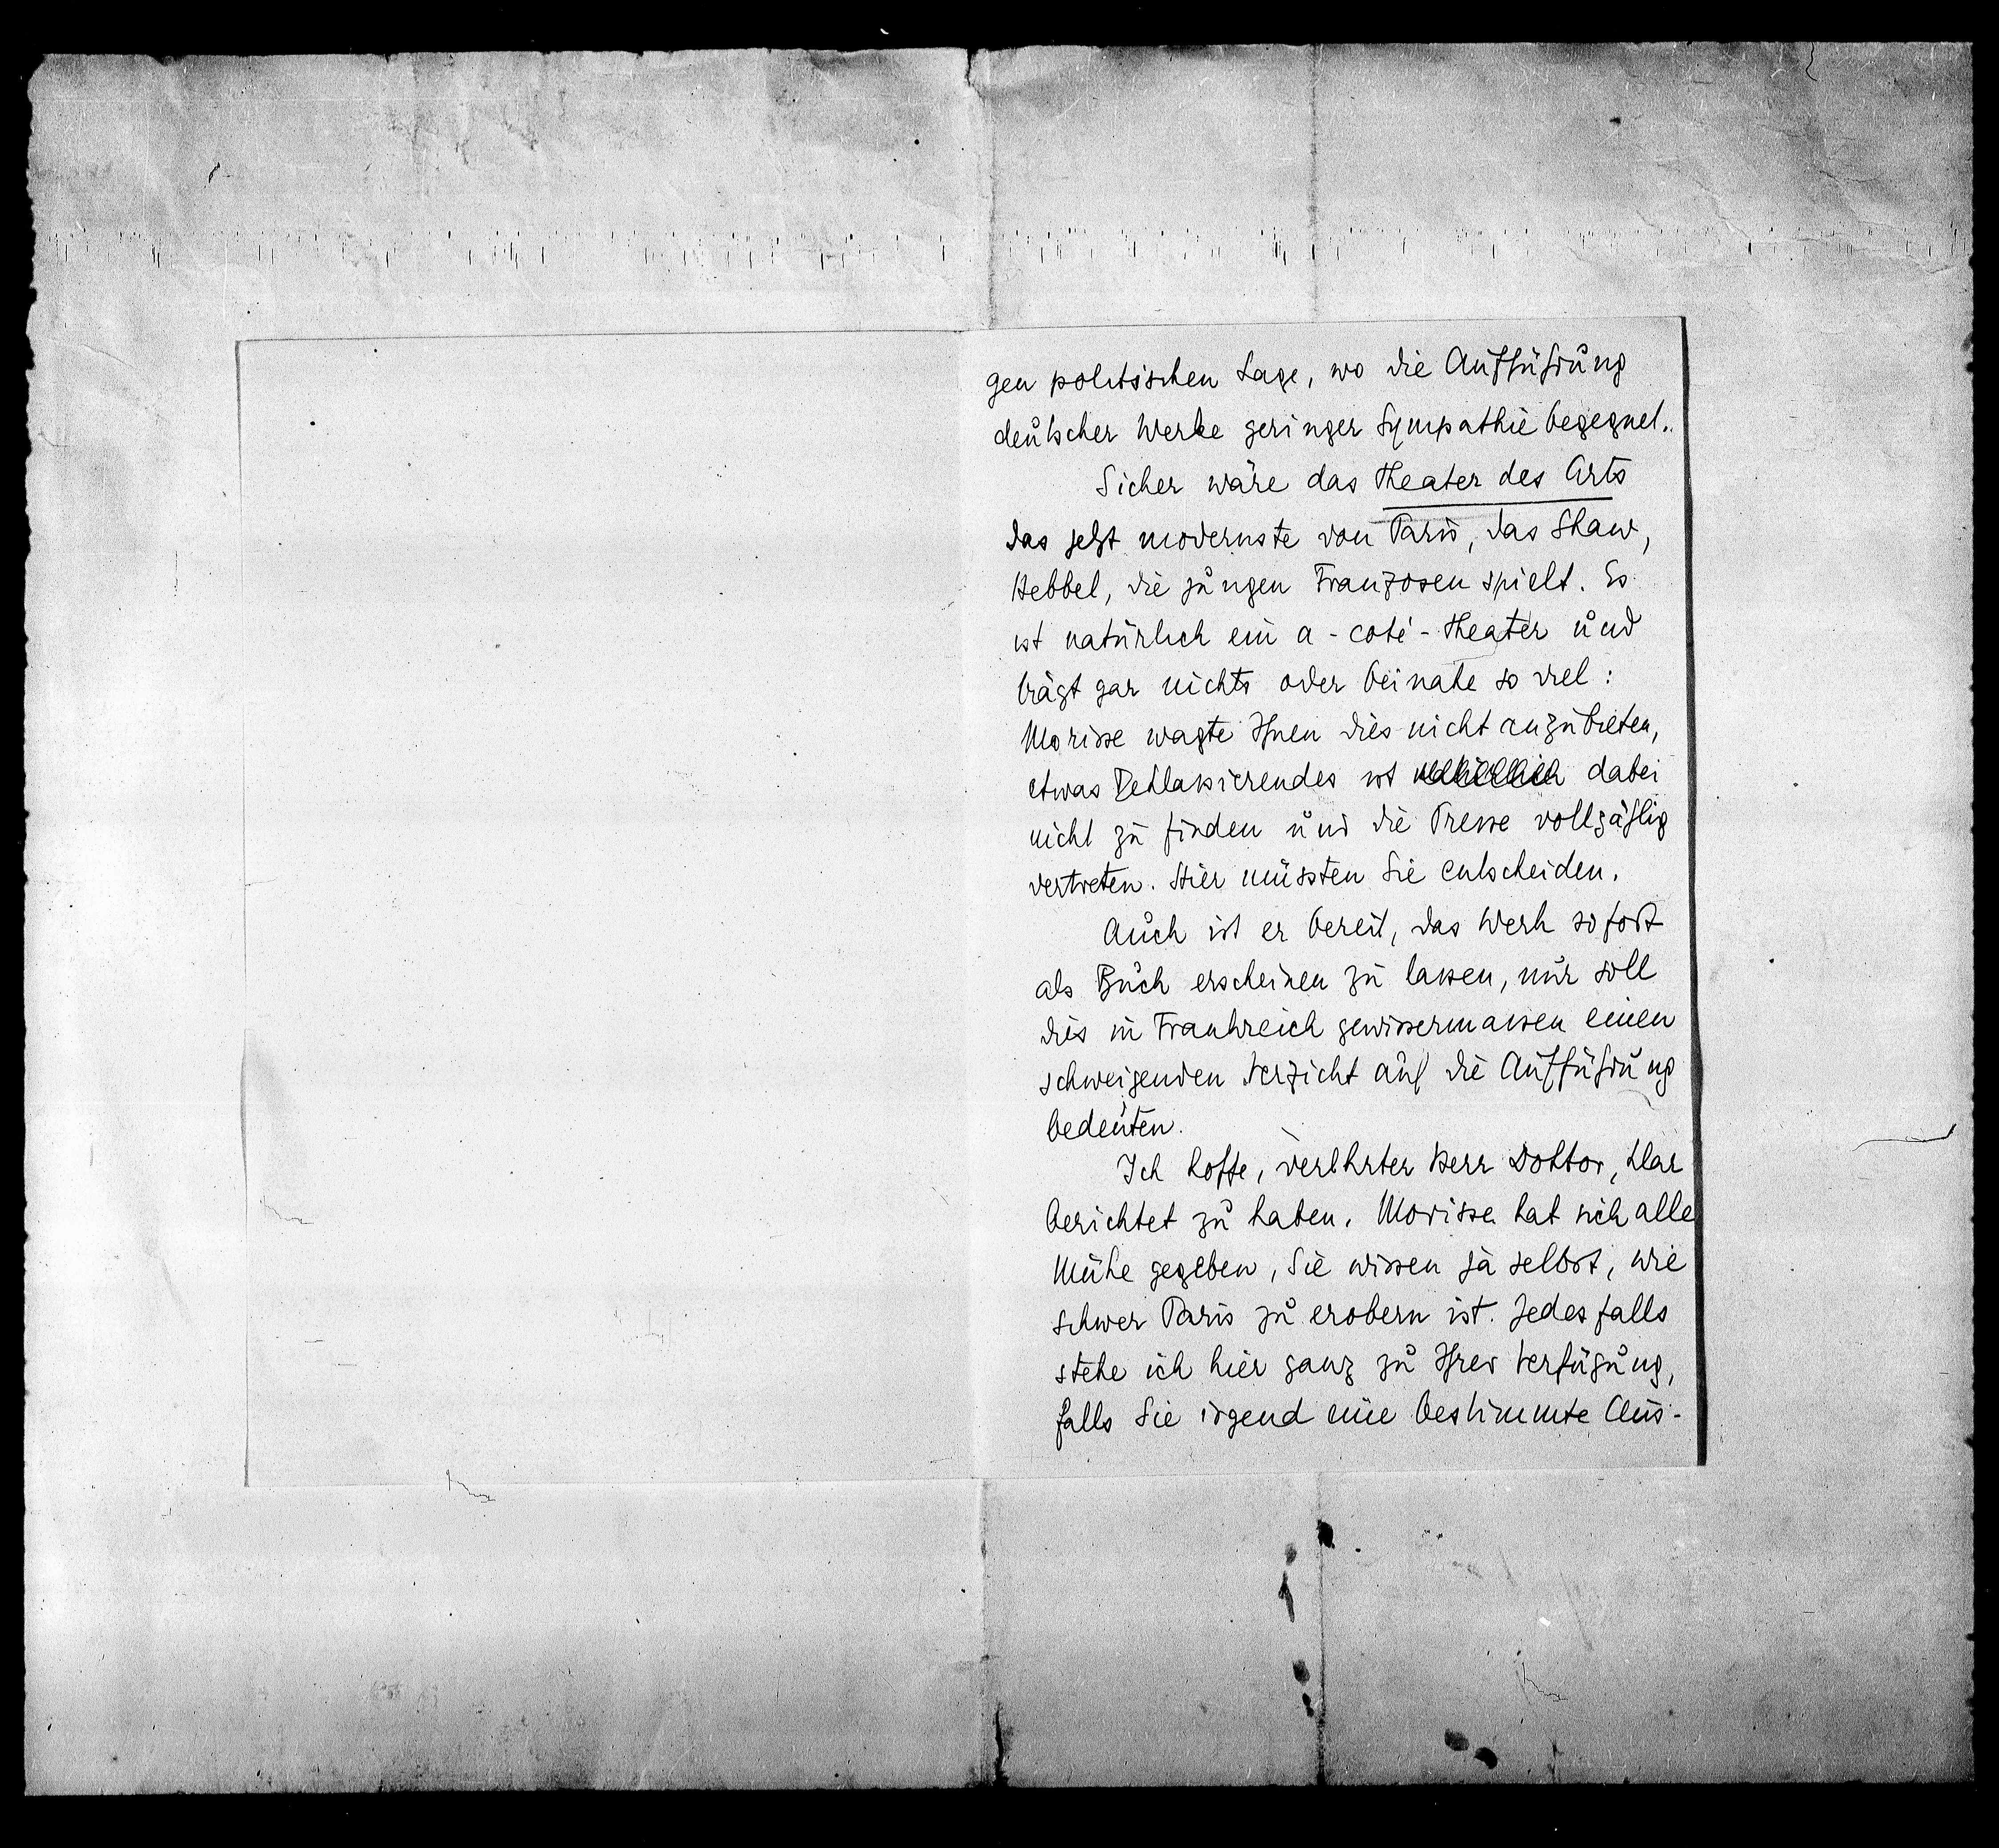 gen politischen Lage, wo die Aufführung
deutscher Werke geringer Sympathie begegnet.
Sicher wäre das Theater des Arts
das jetzt modernste von Paris, das Shaw,
Hebbel, die jungen Franzosen spielt. Es
ist natürlich ein a-coté-Theater und
trägt gar nichts oder beinahe so viel:
Morisse wagte Ihnen dies nicht anzubieten,
etwas Deklassierendes ist dabei
nicht zu finden und die Presse vollzählig
vertreten. Hier müssten Sie entscheiden.
Auch ist er bereit, das Werk sofort
als Buch erscheinen zu lassen, nur soll
dies in Frankreich gewissermassen einen
schweigenden Verzicht auf die Aufführung
bedeuten.
Ich hoffe, verehrter Herr Doktor, klar
berichtet zu haben. Morisse hat sich alle
Mühe gegeben, Sie wissen ja selbst, wie
schwer Paris zu erobern ist. Jedesfalls
stehe ich hier ganz zu Ihrer Verfügung,
falls Sie irgend eine bestimmte Aus-